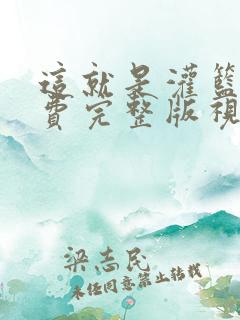 這就是灌籃
費完整版視
梁志民
未經同意禁止轉載